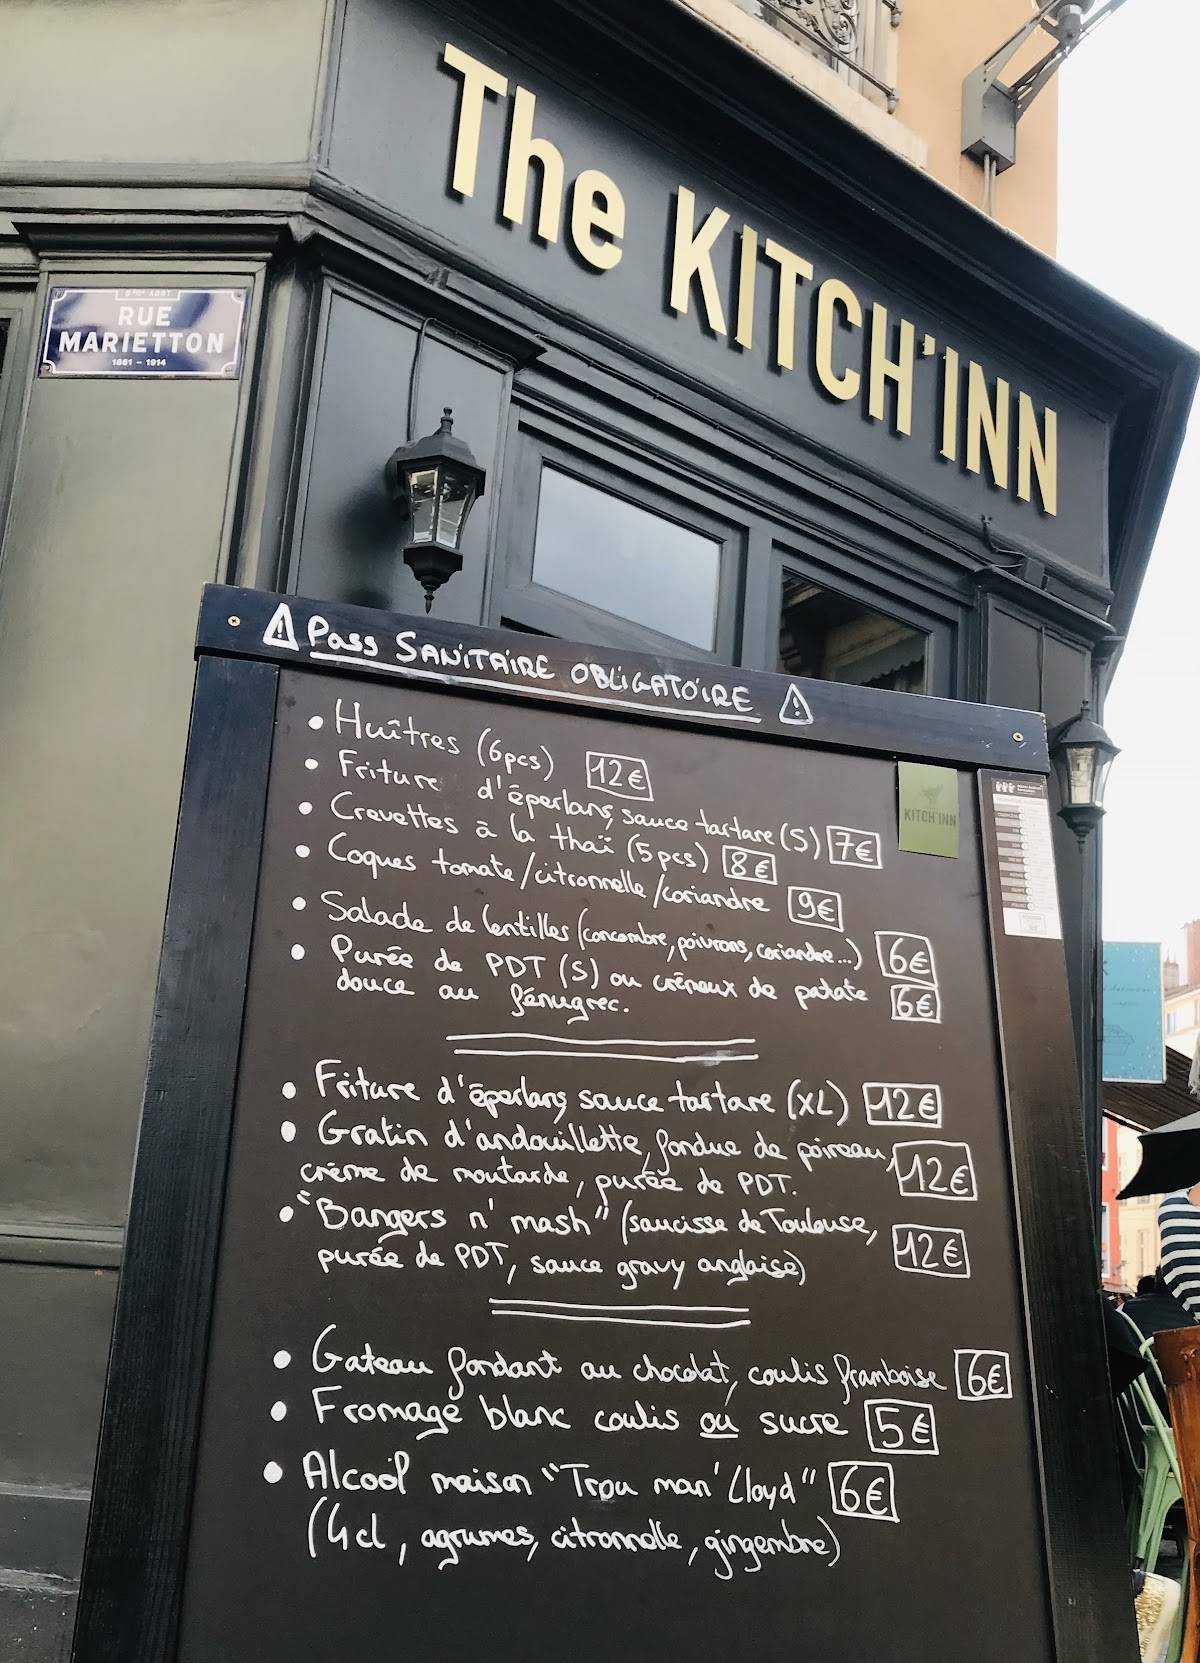 The KITCH'INN
RUE
MARIETTON
1861 - 1914
⚠ Pass SANITAIRE OBLIGATOIRE ⚠
• Huîtres (6pcs) 12€
• Friture d'éperlans, sauce tartare (S) 7€
• Crevettes à la thaï (5pcs) 8€
• Coques tomate/citronnelle/coriandre 9€
• Salade de lentilles (concombre, poivrons, coriandre...) 6€
• Purée de PDT (S) ou crémeux de patate
douce au fénugrec. 6€
• Friture d'éperlans, sauce tartare (XL) 12€
• Gratin d'andouillette, fondue de poireau,
crème de moutarde, purée de PDT. 12€
• "Bangers n' mash" (saucisse de Toulouse,
purée de PDT, sauce gravy anglaise) 12€
• Gateau fondant au chocolat, coulis framboise 6€
• Fromage blanc coulis ou sucre 5€
• Alcool maison "Trou man' Lloyd" 6€
(4cl, agrumes, citronnelle, gingembre)
KITCH'INN